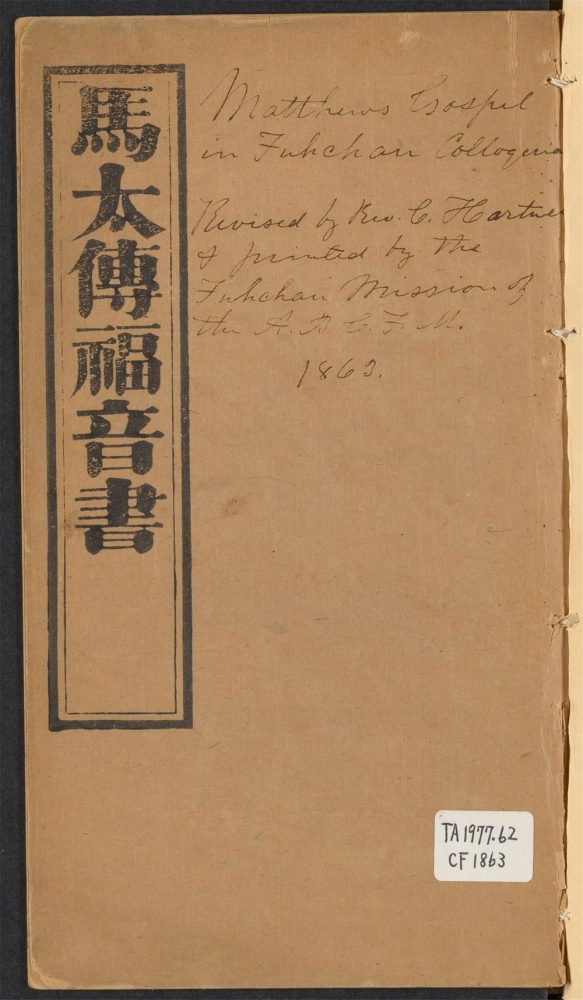 馬太傳福音書
Matthews Gospel
in Fuhchau Colloquia
Revised by Rev. C. Hartwe
& printed by the
Fuhchau Mission of
the A. B. C. F. M.
1863.
TA 1977.62
CF 1863